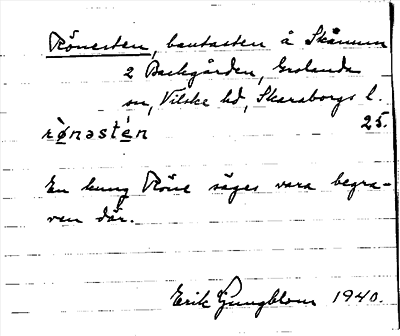 Rönesten, bautasten å Skånum
2 Backgården, Grolanda
sn, Vilske hd, Skaraborgs l.
rø̀nəstén 25.
En kung Röne säges vara begra-
ven där.
Erik Ljungblom 1940.